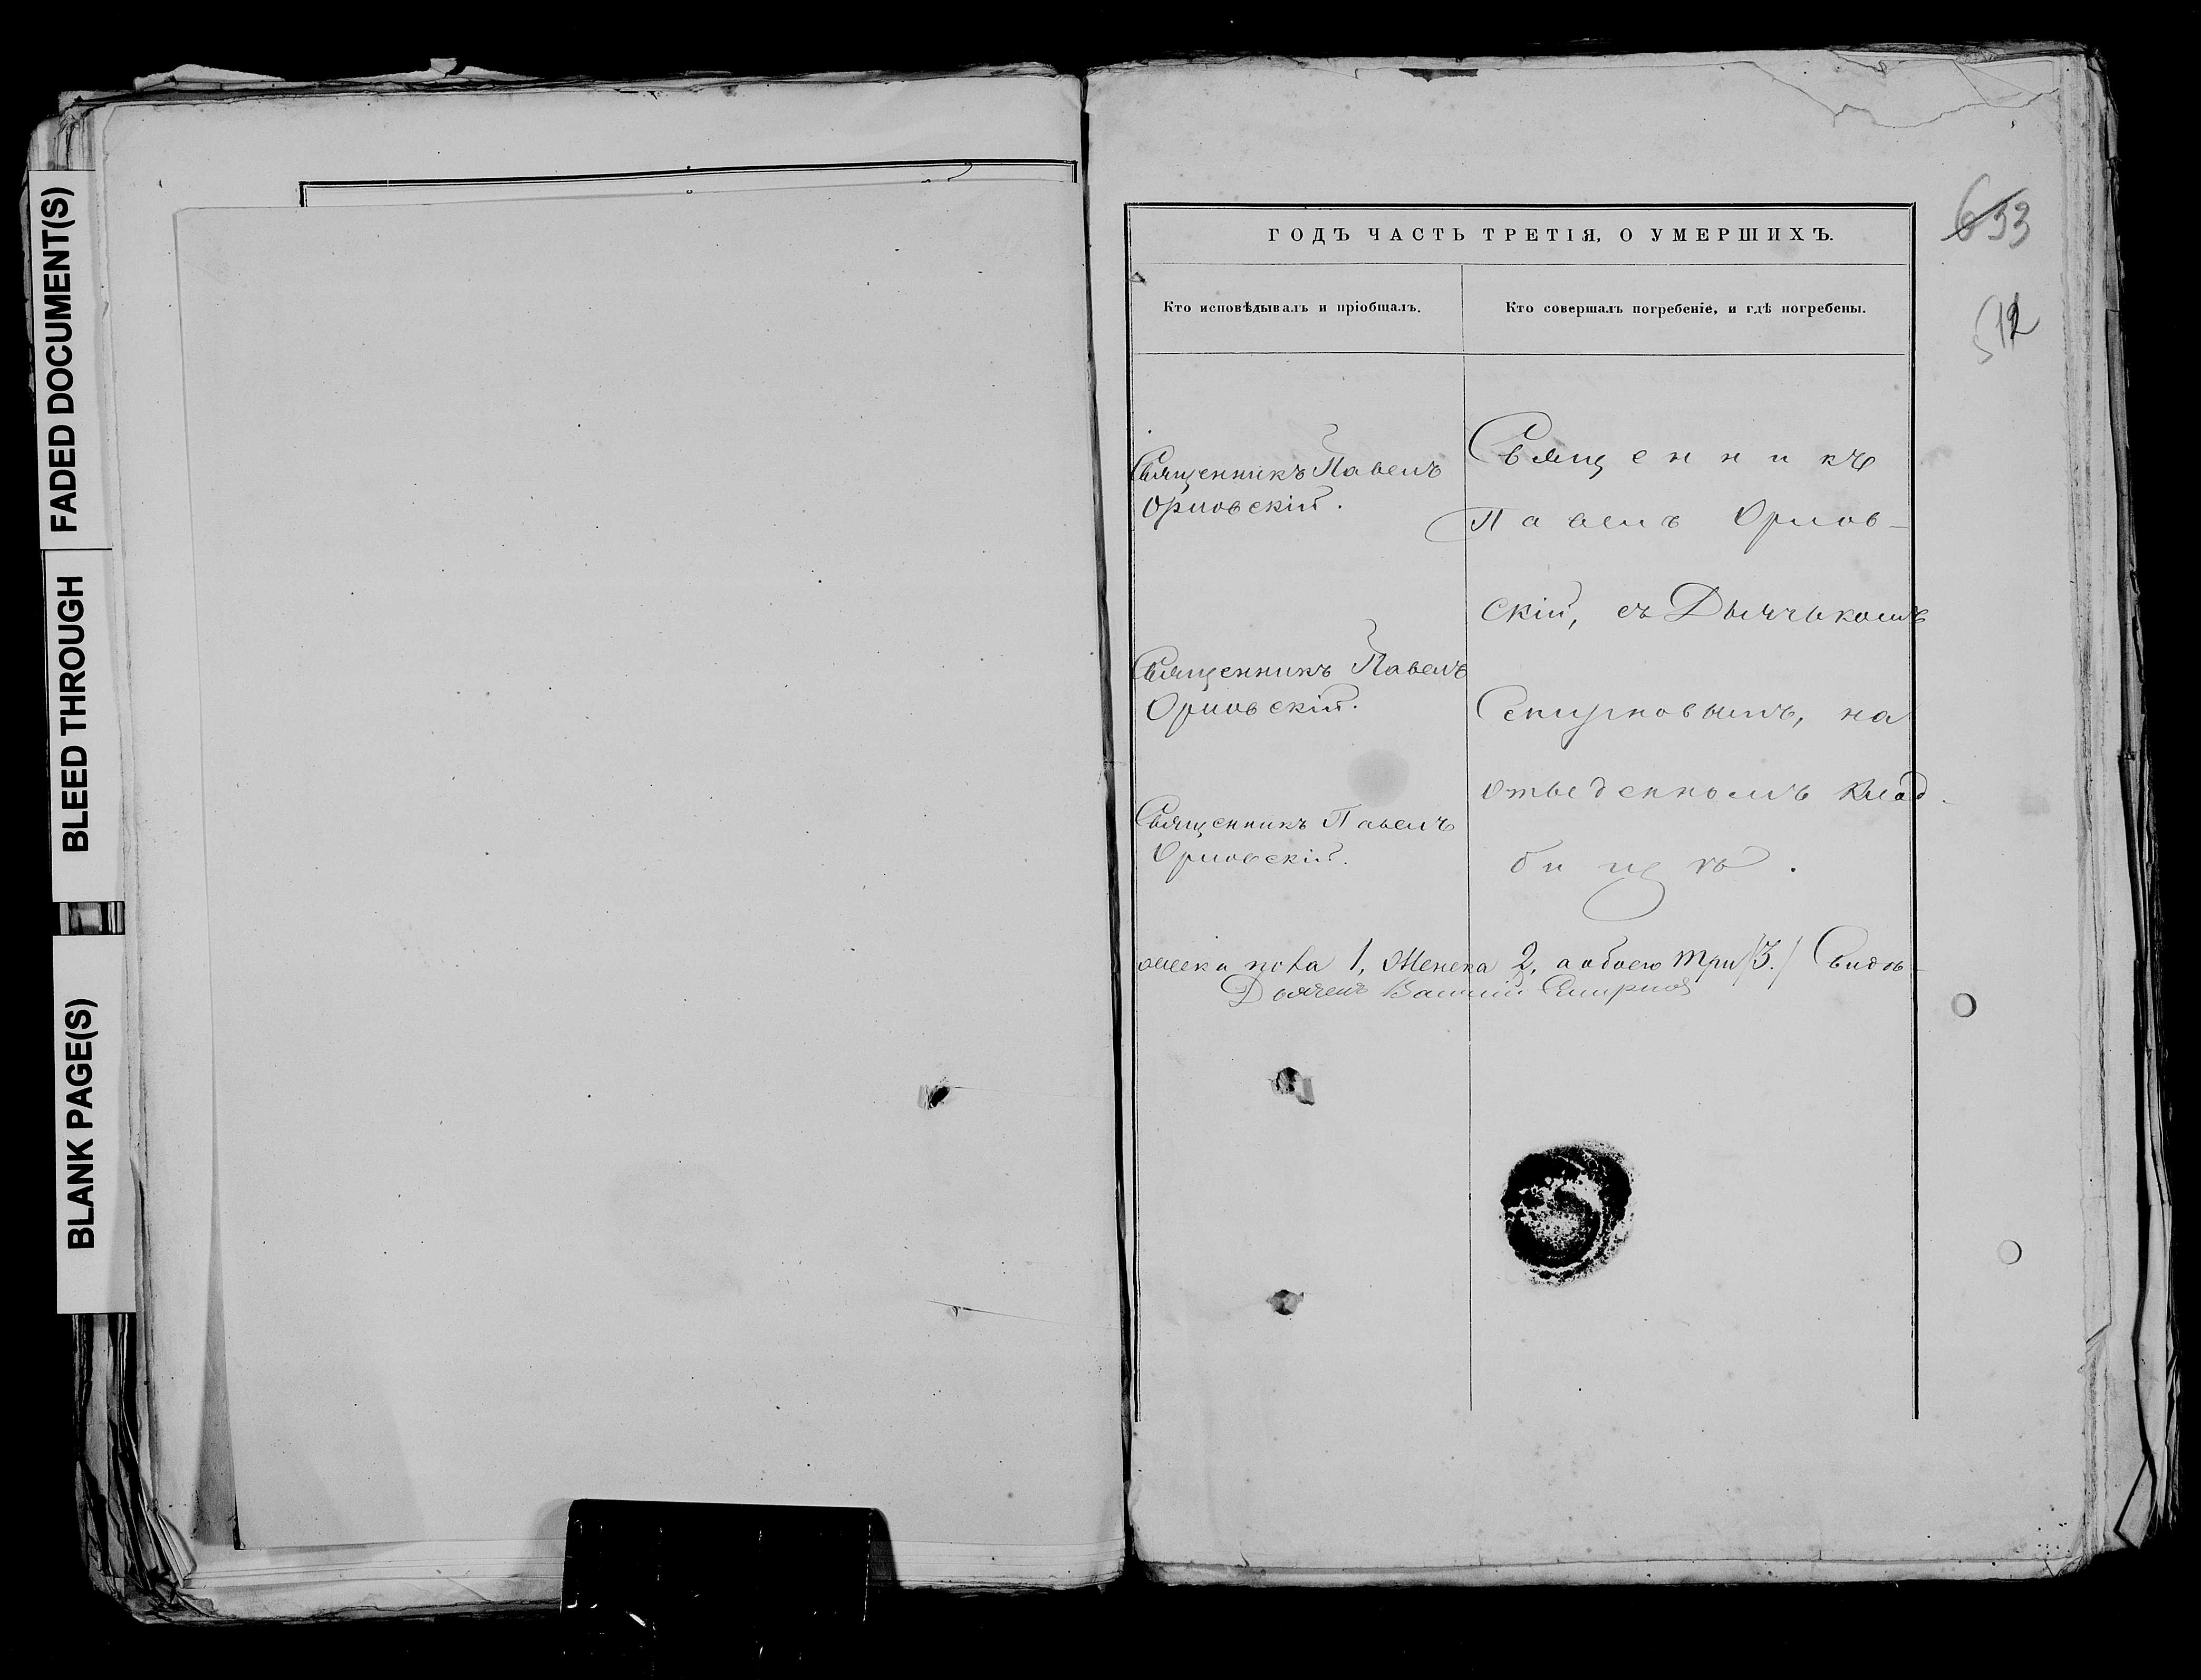 FADED DOCUMENT(S)
BLEED THROUGH
BLANK PAGE(S)
633
512
ГОДЪ ЧАСТЬ ТРЕТІЯ, О УМЕРШИХЪ.
Кто исповѣдывалъ и пріобщалъ.
Кто совершалъ погребеніе, и гдѣ погребены.
Священникъ Павелъ
Орловскій.
Священникъ Павелъ
Орловскій.
Священникъ Павелъ
Орловскій.
Священникъ
Павелъ Орлов-
скій, съ Дьячькомъ
Смирновымъ, на
отведенномъ клад-
бищѣ.
пола 1, Женска 2, а обоего три /3./
Дьячекъ Василій Смирновъ